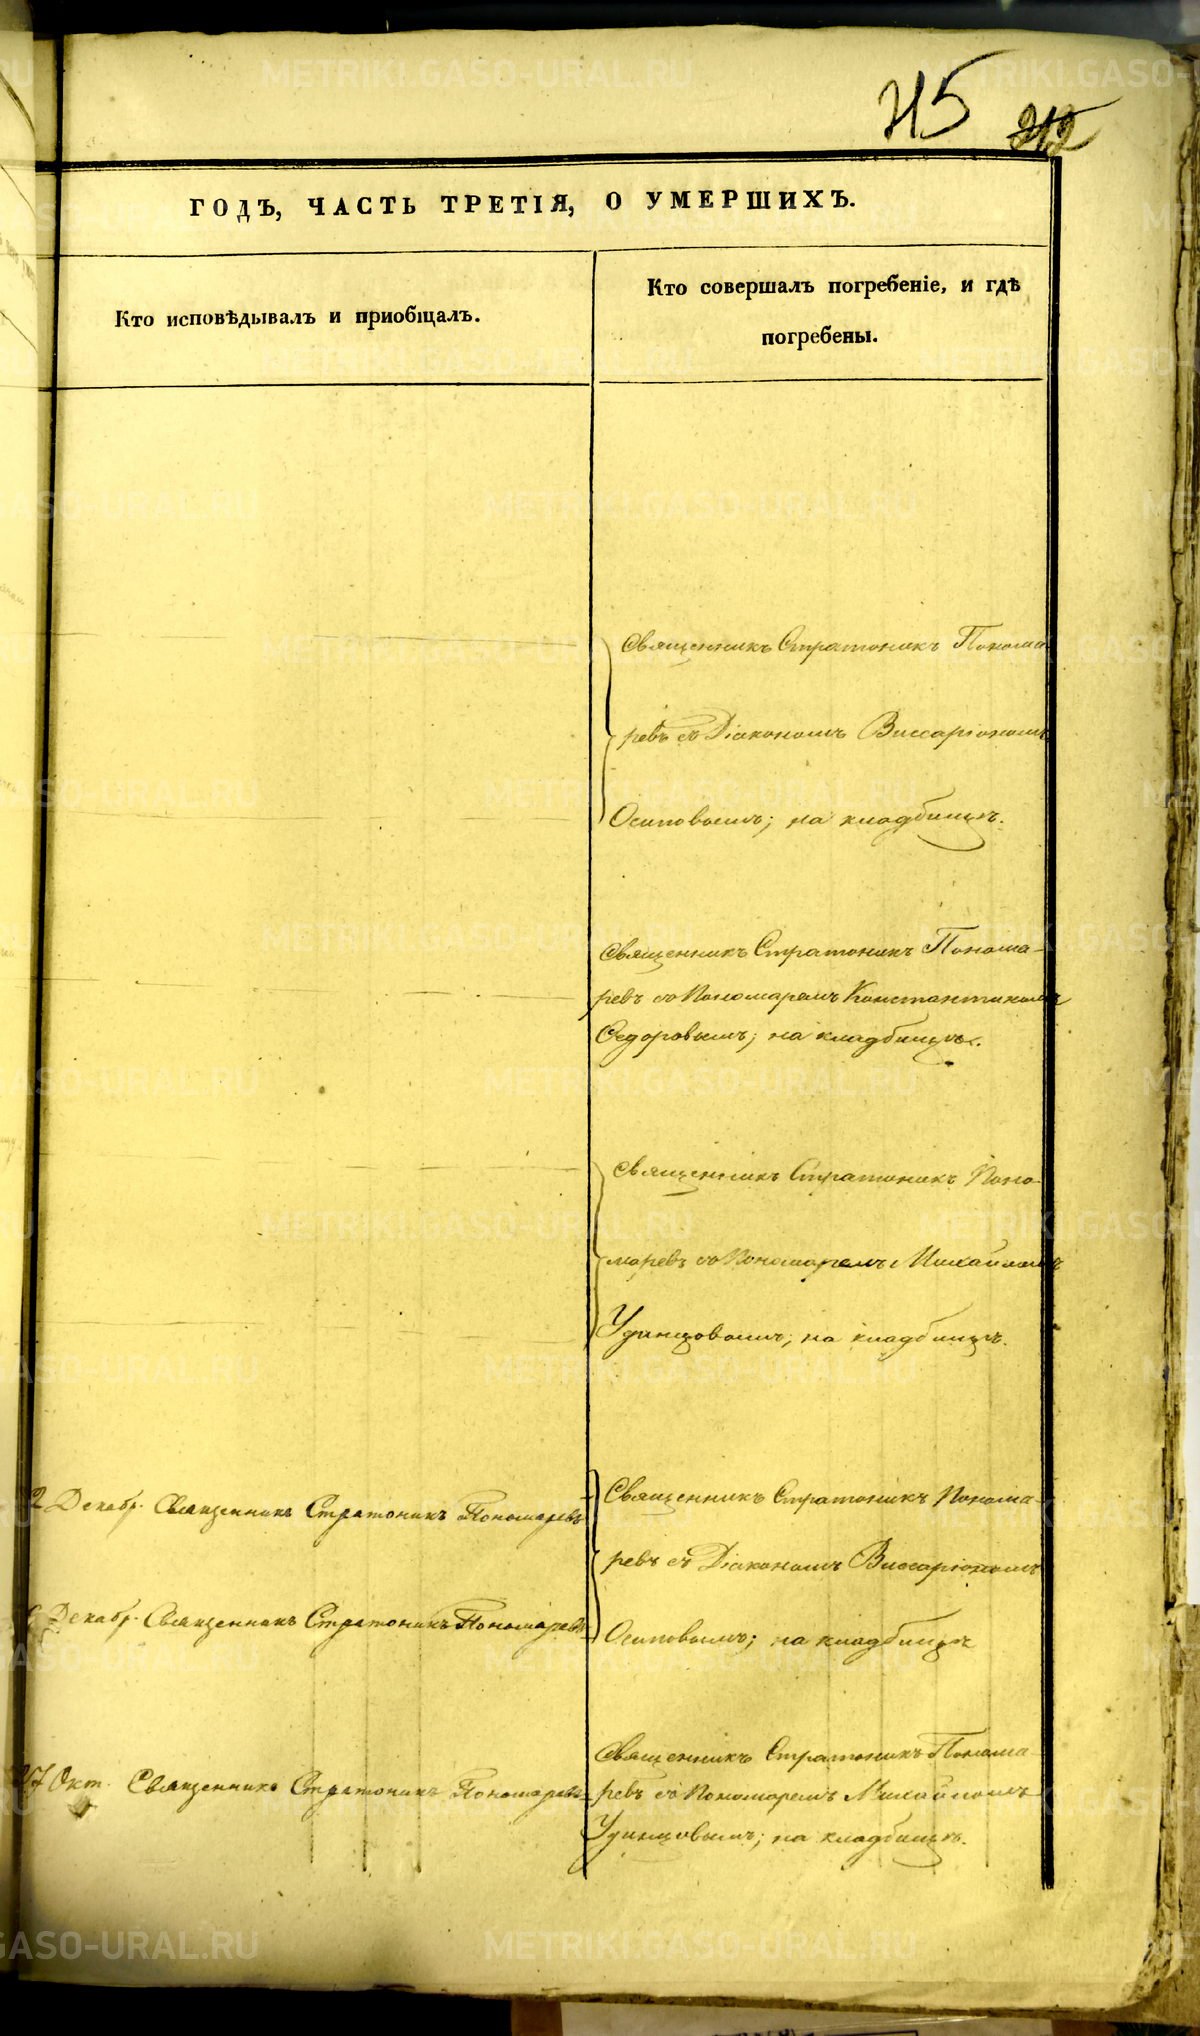 215 212
ГОДЪ, ЧАСТЬ ТРЕТІЯ, О УМЕРШИХЪ.
Кто исповѣдывалъ и пріобщалъ.
Кто совершалъ погребеніе, и гдѣ
погребены.
Священникъ Стратоникъ Понома
ревъ съ Діакономъ Виссаріономъ
Осиповымъ; на кладбищѣ.
Священникъ Стратоникъ Понома-
ревъ со Пономаремъ Константиномъ
Ѳедоровымъ; на кладбищѣ.
Священникъ Стратоникъ Поно-
маревъ со Пономаремъ Михайломъ
Удинцовымъ; на кладбищѣ.
2 Декабр. Священникъ Стратоникъ Пономаревъ
Священникъ Стратоникъ Понома-
ревъ съ Діакономъ Виссаріономъ
Декабр. Священникъ Стратоникъ Пономаревъ
Осиповымъ; на кладбищѣ
27 Окт. Священникъ Стратоникъ Пономаревъ
Священникъ Стратоникъ Понома
ревъ со Пономаремъ Михайломъ
Удинцовымъ; на кладбищѣ.
METRIKI.GASO-URAL.RU